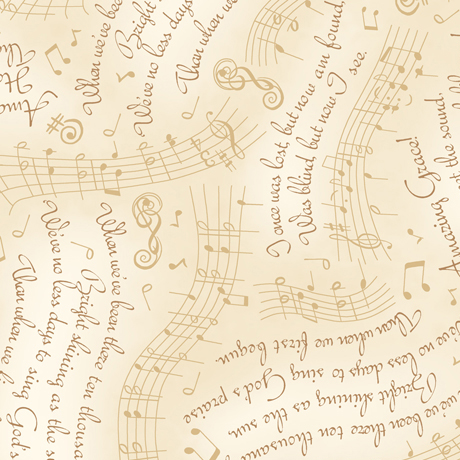 When we've bee
Bright
We've no less days
Than when we
I once was lost, but now am found,
Was blind, but now I see.
Amazing Grace!
the sound,
When we've been there ten thousa
Bright shining as the su
We've no less days to sing God's
Than when we fi
we've been there ten thousand
Bright shining as the sun.
ve no less days to sing God's praise
Than when we first begun.